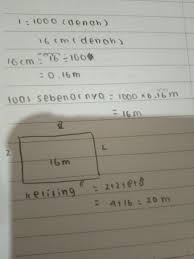 1 = 1000 (denah)
16 cm (denah)
16 cm = 16 ÷ 100
= 0.16 m
sebenarnya = 1000 x 0.16 m
= 16 m
8
2
L
16 m
keliling = 2+2+8+8
= 4+16 = 20 m